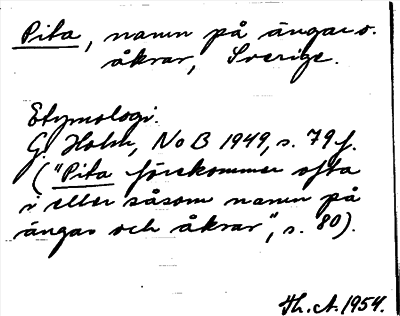 Pita, namn på ängar o.
åkrar, Sverige.
Etymologi.
G. Holm, NoB 1949, s. 79 f.
("Pita förekommer ofta
i eller såsom namn på
ängar och åkrar", s. 80).
Th. A. 1954.